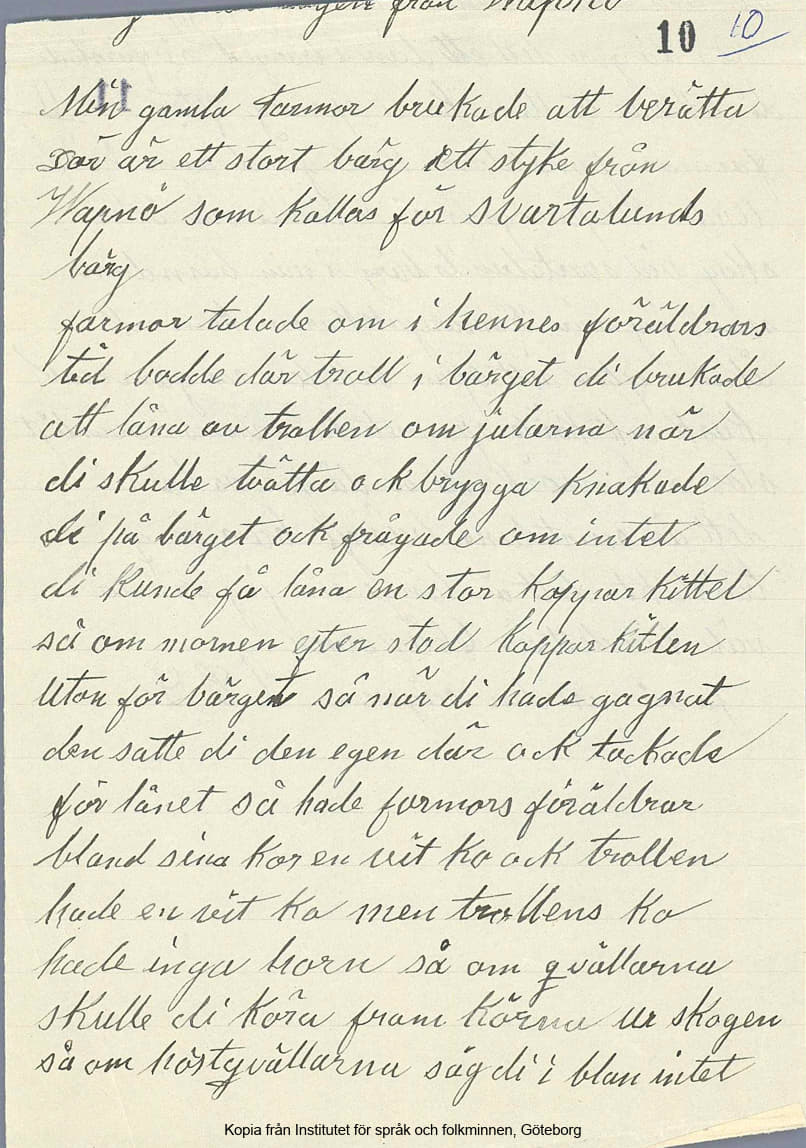 från Wapnö
10 10
11
Min gamla farmor brukade att berätta
där är ett stort bärg ett styke från
Wapnö som kallas för svartalunds
bärg
farmor talade om i hennes föräldrars
tid bodde där troll i bärget di brukade
att låna av trollen om jularna når
di skulle tvätta ock brygga knakade
di på bärget ock frågade om intet
di kunde få låna en stor koppar kittel
så om mornen efter stod koppar kitlen
utan för bärget så når di hade gagnat
den satte di den egen där ock tackade
för lånet så hade farmors föräldrar
bland sina kor en vit ko ock trollen
hade en vit ko men trollens ko
hade inga horn så om qvällarna
skulle di köra fram körna ur skogen
så om höstqvällarna såg di i blan intet
Kopia från Institutet för språk och folkminnen, Göteborg